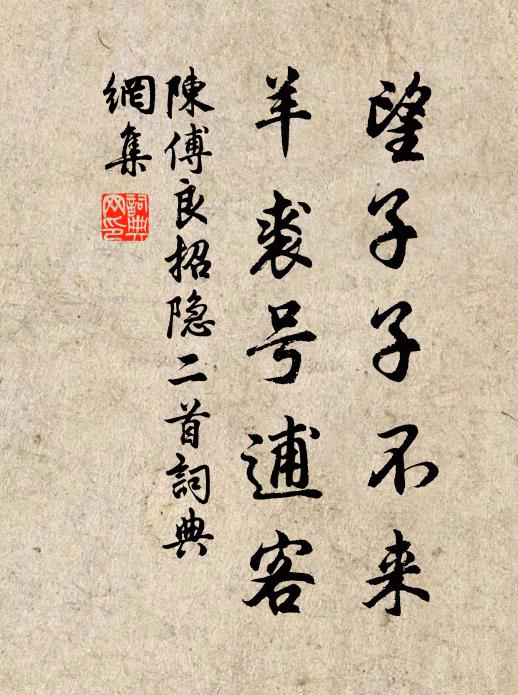 望子子不来
羊裘号逋客
陳傅良招隐二首詞典
網集
詞典
网印